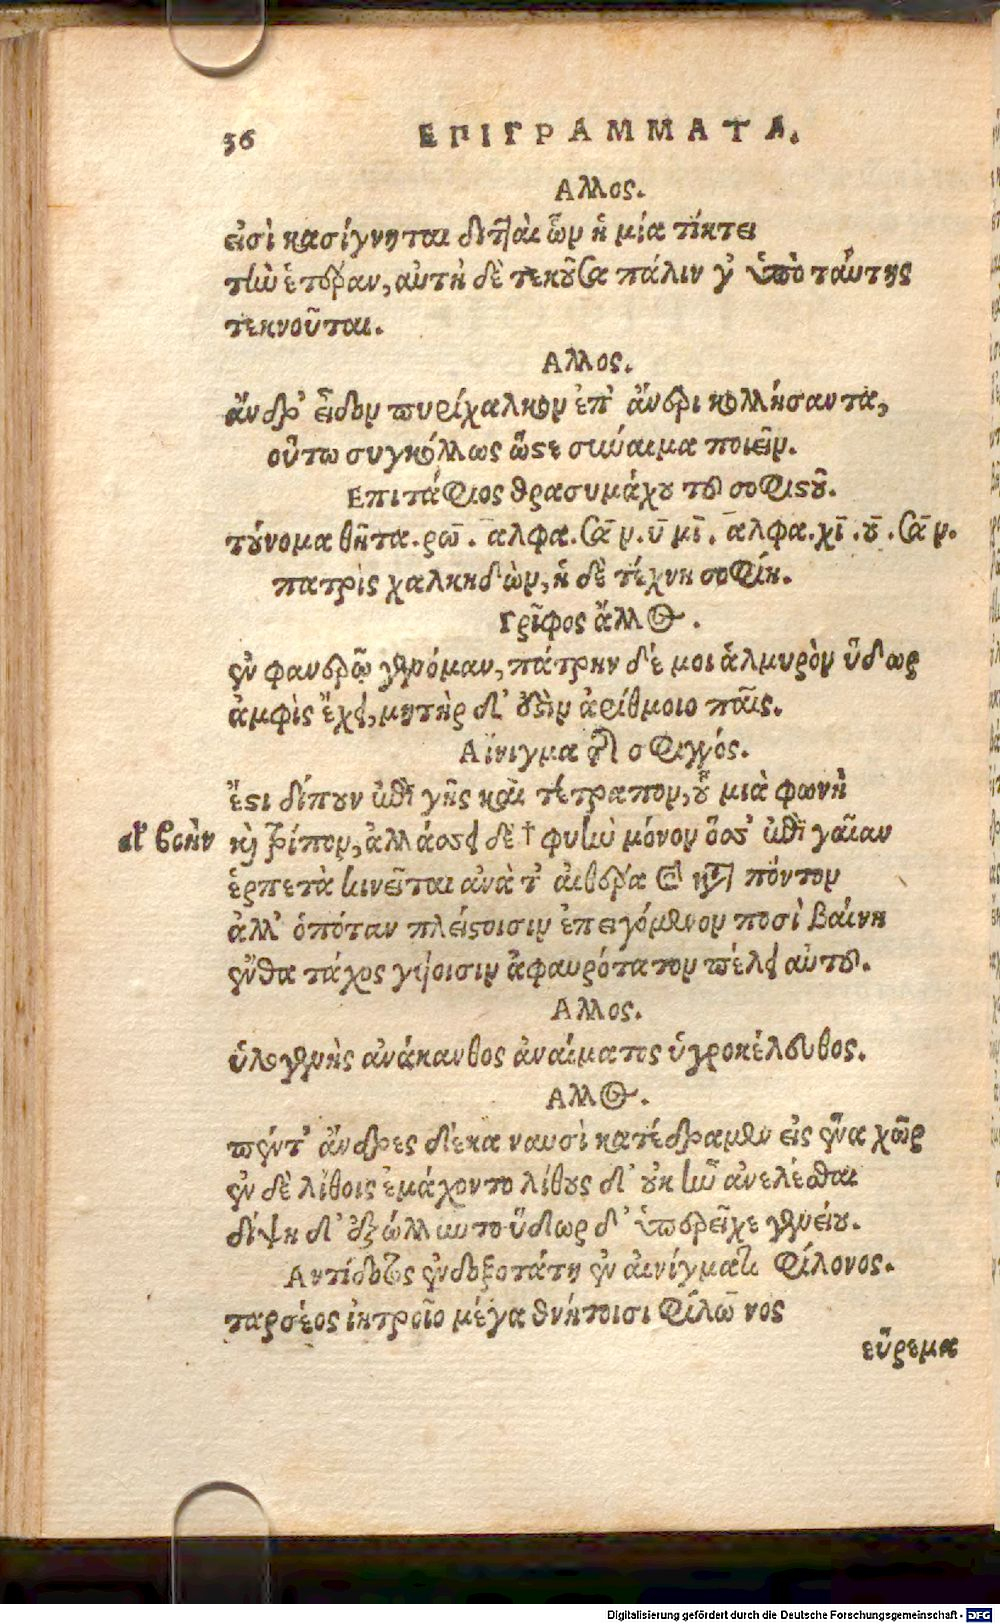 36 ΕΠΙΓΡΑΜΜΑΤΑ.
Αλλος.
εἰσὶ κασίγνηται διτταὶ ὧν ἡ μία τίκτει
τὴν ἑτέραν, αὐτὴ δὲ τεκοῦσα πάλιν γ' ὑπὸ ταύτης
τεκνοῦται.
Αλλος.
ἄνδρ' εἶδον πυρίχαλκον ἐπ' ἄνδρι κολλήσαντα,
οὕτω συγκόλλως ὥστε σύναιμα ποιεῖν.
Επιτάφιος θρασυμάχου τοῦ σοφιστοῦ.
τοὔνομα θῆτα. ρω̄. ἄλφα. σᾱν. ῡ μῑ. ἄλφα. χῑ. οῡ. σᾱν.
πατρὶς χαλκηδὼν, ἡ δὲ τέχνη σοφίη.
Γρῖφος ἄλλος.
ἐν φανερῷ γενόμαν, πάτρην δέ μοι ἁλμυρὸν ὕδωρ
ἀμφὶς ἔχει, μητὴρ δ' ἀρίθμοιο παῖς.
Αἴνιγμα τῆς σφιγγός.
ἔστι δίπουν ἐπὶ γῆς καὶ τέτραπον, οὗ μιὰ φωνὴ
αλ' βοὴν καὶ τρίπον, ἀλλάσσει δὲ † φυὴν μόνον ὅσσ' ἐπὶ γαῖαν
ἑρπετὰ κινεῖται ἀνὰ τ' αἰθέρα καὶ κατὰ πόντον
ἀλλ' ὁπόταν πλείστοισιν ἐπειγόμενον ποσὶ βαίνη
ἔνθα τάχος γυίοισιν ἀφαυρότατον πέλει αὐτοῦ.
Αλλος.
ὑλογενὴς ἀνάκανθος ἀναίματος ὑγροκέλευθος.
Αλλος.
πέντ' ἄνδρες δέκα ναυσὶ κατέδραμεν εἰς ἕνα χῶρ
ἐν δὲ λίθοις ἐμάχοντο λίθους δ' οὐκ ἦν ἀνελέσθαι
δίψη δ' ἐξώλλυντο ὕδωρ δ' ὑπερεῖχε γενείου.
Αντίδοτος ἐνδοξοτάτη ἐν αἰνίγματι Φίλονος.
ταρσέος ἰητροῖο μέγα θνήτοισι Φίλωνος
εὕρεμα
Digitalisierung gefördert durch die Deutsche Forschungsgemeinschaft - DFG